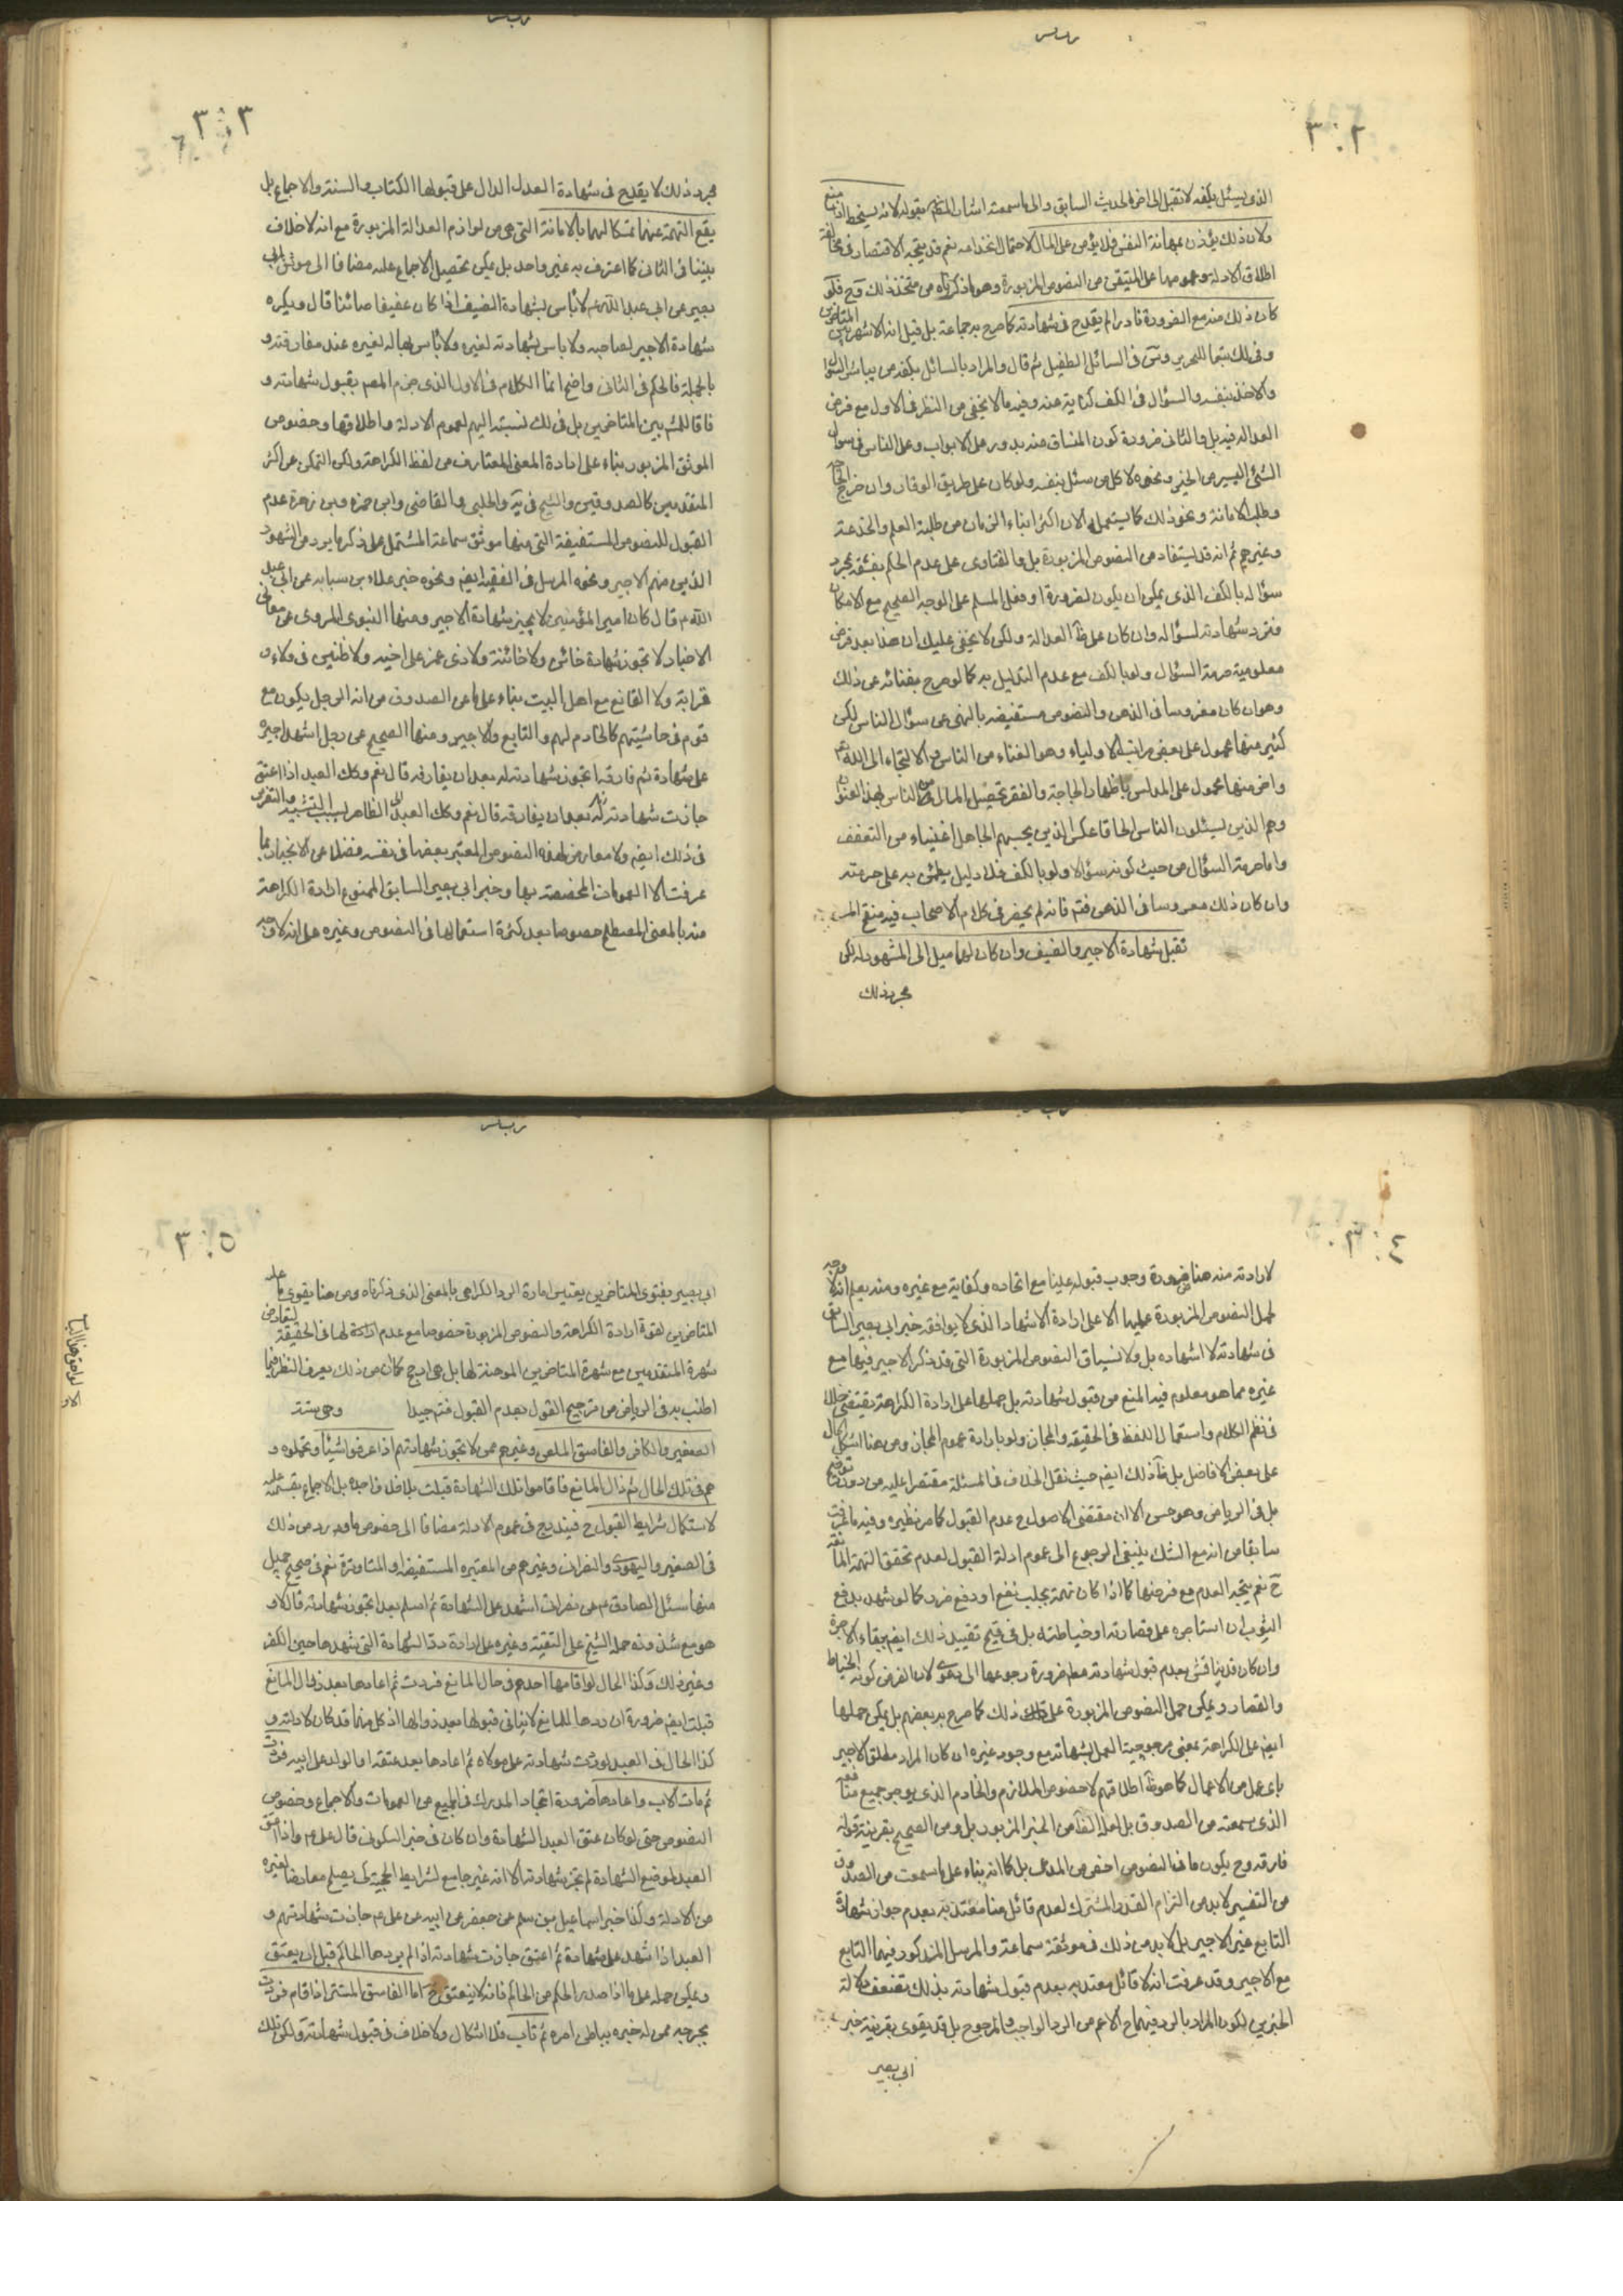 ٣٠٢
الذي يسئل بكفه لا تقبل الى اخر الحديث السابق والى ما سمعته اشار المص بقوله لانه يسخط اذا منع
ولان ذلك يؤذن بمهانة النفس فلا يؤمن على المال لاحتمال انخداعه نعم قد يتجه الاقتصار في مخالفة
اطلاق الادلة وعمومها على المتيقن من النصوص المزبورة وهو ما ذكرناه من متخذ ذلك وح فلو
كان ذلك منه مع الضرورة نادرا لم يقدح في شهادته كما صرح به جماعة بل قيل انه الاشهر بين المتاخرين
وفي لك تبعا للتحرير في السائل الطفيل ثم قال والمراد بالسائل بكفه من يباشر السؤال
والاخذ بنفسه والسؤال في الكف كناية عنه وفيه ما لا يخفى من النظر في الاول مع فرض
العدالة فيه بل والثاني ضرورة كون المنساق منه يدور على الابواب وعلى الناس في سؤال
الشئ اليسير من الخبز ونحوه لا كل من سئل بنفسه ولو كان على طريق الوقار وان خرج
وطلب الامانة ونحو ذلك كما يستعمله الان اكثر ابناء الزمان من طلبة العلم والخدمة
وغيرهم ثم انه قد يستفاد من النصوص المزبورة بل والفتاوى على عدم الحكم بفسقه بمجرد
سؤاله بالكف الذي يمكن ان يكون لضرورة او فعل المسلم على الوجه الصحيح مع الامكان
فترد شهادته لسؤاله وان كان على ظ العدالة ولكن لا يخفى عليك ان هذا بعد فرض
معلومية حرمة السؤال ولو بالكف مع عدم التدليس به كما لو صرح بغنائه عن ذلك
وهو ان كان مغروسا في الذهن والنصوص مستفيضة بالنهي عن سؤال الناس لكن
كثير منها محمول على بعض مراتب الاولياء وهو الغناء من الناس والالتجاء الى الله
واخر منها محمول على المدلس باظهار الحاجة والفقر لتحصيل المال من الناس لهذا العنوان
وهم الذين يسئلون الناس الحافا عكس الذين يحسبهم الجاهل اغنياء من التعفف
واما حرمة السؤال من حيث كونه سؤالا ولو بالكف فلا دليل يطمئن به على حرمته
وان كان ذلك مغروسا في الذهن فتم فانه لم يحضر في كلام الاصحاب فيه منقح
تقبل شهادة الاجير والضيف وان كان لهما ميل الى المشهود له لكن
مجرد ذلك
٣٠٣
مجرد ذلك لا يقدح في شهادة العدل الدال على قبولها الكتاب والسنة والاجماع بل
يقع التهمة عنهما تمسكا لهما بالامانة التي هي من لوازم العدالة المزبورة مع انه لا خلاف
بيننا في الثاني كما اعترف به غير واحد بل يمكن تحصيل الاجماع عليه مضافا الى موثق ابي
بصير عن ابي عبد الله ع لا باس بشهادة الضيف اذا كان عفيفا صائنا قال ويكره
شهادة الاجير لصاحبه ولا باس بشهادته لغيره ولا باس بها له لغيره عند مفارقته و
بالجملة فالحكم في الثاني واضح انما الكلام في الاول الذي جزم المص بقبول شهادته و
فاقا للمش بين المتاخرين بل في لك نسبته اليهم لعموم الادلة واطلاقها وخصوص
الموثق المزبور بناء على ارادة المعنى المتعارف من لفظ الكراهة ولكن المحكي عن اكثر
المتقدمين كالصدوقين والشيخ في ية والحلبي والقاضي وابن حمزة وبن زهرة عدم
القبول للنصوص المستفيضة التي منها موثق سماعة المشتمل على ذكر ما يرد من الشهود
الذين منهم الاجير ونحوه المرسل في الفقيه ايضا ونحوه خبر علاء بن سيابه عن ابي عبد
الله ع قال كان امير المؤمنين لا يجيز شهادة الاجير ومنها النبوي المروي عن معاني
الاخبار لا تجوز شهادة خائن ولا خائنة ولا ذي غمز على اخيه ولا ظنين في ولاء و
قرابة ولا القانع مع اهل البيت بناء على ما عن الصدوق من انه الرجل يكون مع
قوم في حاشيتهم كالخادم لهم والتابع والاجير ومنها الصحيح عن رجل اشهد اجيره
على شهادة ثم فارقه اتجوز شهادته له بعد ان يفارقه قال نعم وكك العبد اذا اعتق
جازت شهادته
في ذلك ايضا ولا معارض لهذه النصوص المعتبر بعضها في نفسه فضلا عن الانجبار بما
عرفت الا العمومات المخصصة بها وخبر ابي بصير السابق الممنوع ارادة الكراهة
منه بالمعنى المصطلح خصوصا بعد كثرة استعمالها في النصوص وغيره على انه لا وجه
٣٠٤
لارادته منه هنا ضرورة وجوب قبوله علينا مع اتحاده وكفايته مع غيره ومنه يعلم انه لا وجه
لحمل النصوص المزبورة عليها الا على ارادة الاشهاد الذي لا يوافقه خبر ابي بصير السابق
في شهادته لا اشهاده بل ولا لسياق النصوص المزبورة التي قد ذكر الاجير فيها مع
غيره مما هو معلوم فيه المنع من قبول شهادته بل حملها على ارادة الكراهة يقتضي خللا
في نظم الكلام واستعمال اللفظ في الحقيقة والمجاز ولو بارادة عموم المجاز ومن هنا اشكل الحال
على بعض الافاضل بل ظ ذلك ايضا حيث نقل الخلاف في المسئلة مقتصرا عليه من دون ترجيح
بل في الرياض وهو حسن الا ان مقتضى الاصول ح عدم القبول كما مر نظيره وفيه ما عرفت
سابقا من انه مع الشك ينبغي الرجوع الى عموم ادلة القبول لعدم تحقق التهمة المانعة
ح نعم يتجه العدم مع فرضها كما اذا كان تهمة بجلب نفع او دفع ضرر كما لو شهد بدفع
الثوب ان استاجره على قصارته او خياطته بل في تقييد ذلك ايضا ببقاء الاجرة
وان كان قد يناقش بعدم قبول شهادته مط ضرورة رجوعها الى دعوى لان الفرض كونه الخياط
والقصار ويمكن حمل النصوص المزبورة على ذلك كما صرح به بعضهم بل يمكن حملها
ايضا على الكراهة بمعنى مرجوحية العمل بشهادته مع وجود غيره ان كان المراد مطلق الاجير
باي عمل من الاعمال كما هو ظ اطلاقهم لا خصوص الملازم والخادم الذي يوجر جميع منافعه
الذي سمعته من الصدوق بل لعله الظ من الخبر المزبور بل ومن الصحيح بقرينة قوله
فارقه وح يكون ما في النصوص اخص من المدعى بل كانه بناء على ما سمعت من الصدوق
من التفسير لا بد من التزام القدر المشترك لعدم قائل منا معتد به بعدم جواز شهادة
التابع غير الاجير بل لا بد من ذلك في موثقة سماعة والمرسل المذكور فيهما التابع
مع الاجير وقد عرفت انه لا قائل معتد به بعدم قبول شهادته بذلك تضعف دلالة
الخبرين لكون المراد بالرد فيهما ح الاعم من الرد الواجب والمرجوح بل قد يقوى بقرينة خبر
ابي بصير
٣٠٥
ابي بصير بفتوى المتاخرين يعين ارادة الرد الكراهي بالمعنى الذي ذكرناه ومن هنا يقوى ما عليه
المتاخرين لقوة ارادة الكراهة والنصوص المزبورة خصوصا مع عدم لها في الحقيقة لتعارض
شهرة المتقدمين مع شهرة المتاخرين الموهنة لها بل هي ارجح مكان من ذلك يعرف النظر فيما
اطنب به في الرياض من ترجيح القول بعدم القبول فتم جيدا
الصغير والكافر والفاسق المعلن وغيرهم ممن لا تجوز شهادتهم اذا عرفوا شيئا وتحملوه و
هم في تلك الحال ثم زال المانع فاقاموا تلك الشهادة قبلت بلا خلاف اجده بل الاجماع بقسميه عليه
لاستكمال شرايط القبول ح فيندرج في عموم الادلة مضافا الى خصوص ما ورد من ذلك
في الصغير واليهودي والنصراني وغيرهم من المعتبره المستفيضة والمتواترة نعم في صحيح جميل
منها سئل الصادق ع عن نصراني اشهد على الشهادة ثم اسلم بعد اتجوز شهادته قال لا و
هو مع شذوذه حمله الشيخ على التقية وغيره على ارادة رد الشهادة التي شهدها حين الكفر
وغير ذلك وكذا الحال لو اقامها احدهم في حال المانع فردت ثم اعادها بعد زوال المانع
قبلت ايضا ضرورة ان ردها للمانع لا ينافي قبولها بعد زوالها اذ كل منهما قد كان لادلته و
كذا الحال في العبد لو ردت شهادته على مولاه ثم اعادها بعد عتقه او الولد على ابيه فردت
ثم مات الاب واعادها ضرورة اتحاد المدرك في الجميع من العمومات والاجماع وخصوص
النصوص حتى لو كان عتق العبد للشهادة وان كان في خبر السكوني قال علي ع واذا اعتق
العبد لموضع الشهادة لم تجز شهادته الا انه غير جامع لشرايط الحجية كي يصلح معارضا لغيره
من الادلة وكذا خبر اسماعيل بن مسلم عن جعفر عن ابيه عن علي ع جازت شهادتهم و
العبد اذا شهد على شهادة ثم اعتق جازت شهادته اذا لم يردها الحاكم قبل ان يعتق
ويمكن حمله على ما اذا صدر الحكم من الحاكم فانه لا ينعتق ح اما الفاسق المستتر اذا قام فردت
بجرحه ممن له خبره بباطن امره ثم تاب فلا اشكال ولا خلاف في قبول شهادته ولكن تلك